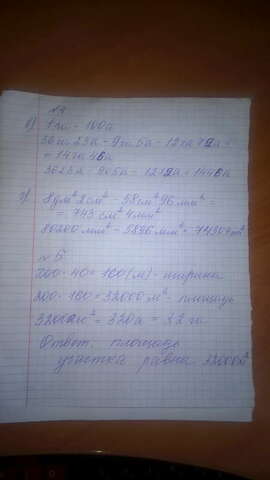 №4
в) 1 га - 100а
36га 23а - 9га 5а - 12га 72а =
= 14га 46а
3623а - 905а - 1272а = 1446а
г) 8дм² 2см² - 58см² 96мм² =
= 743см² 4мм²
80200мм² - 5896мм² = 74304мм²
№5
200 - 40 = 160(м) - ширина
200 · 160 = 32000м² - площадь
32000м² = 320а = 3,2 га
Ответ: площадь
участка равна 32000м²